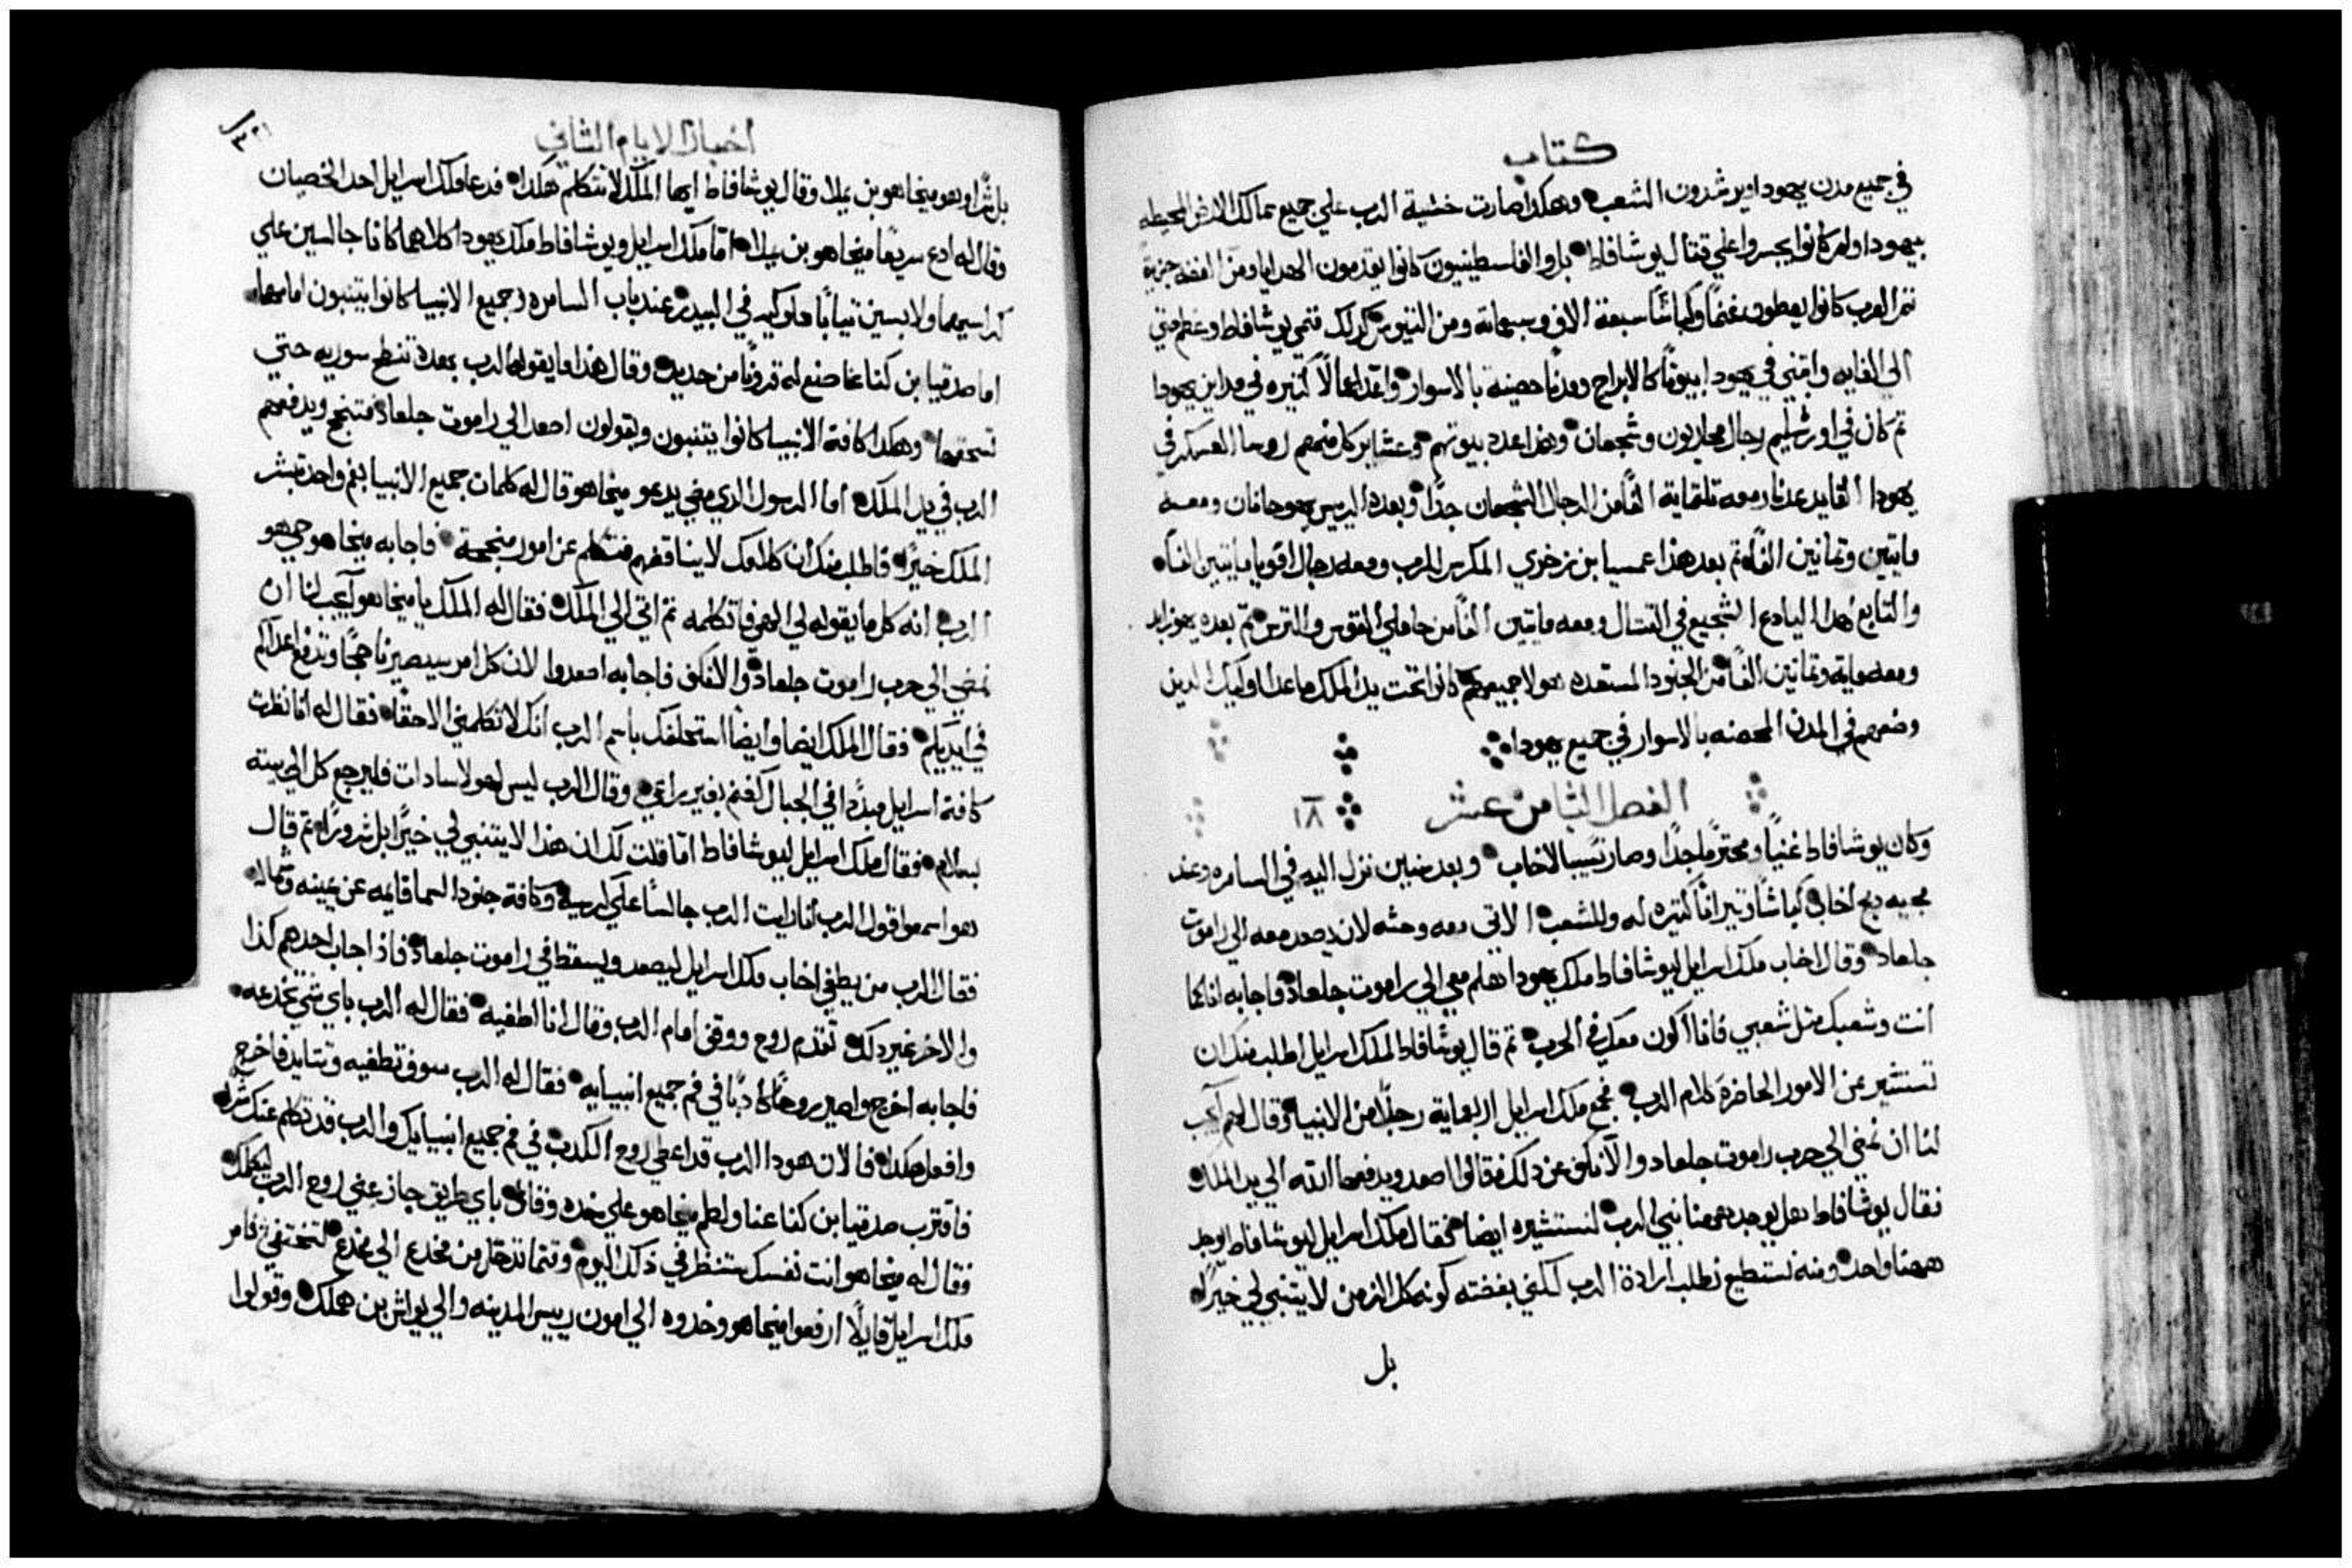 كتاب
في جميع مدن يهودا ويرشدون الشعب وهكذا صارت خشية الرب علي جميع ممالك الارض المحيطه
بيهودا ولم كانوا يجسروا علي قتال يوشافاط بل والفلسطينيون كانوا يقدمون الهدايا ومن الفضه جزية
ثم العرب كانوا يعطون غنمًا وكباشًا سبعة الاف وسبعماية ومن التيوس كذلك فنمي يوشافاط وعظم حتي
الي الغايه وابتني في يهودا بيوتًا كالابراج ومدنًا حصينة بالاسوار واعد اعمالًا كثيره في مداين يهودا
ثم كان في اورشليم رجال محاربون وشجعان وهذا عدد بيوتهم وعشاير كل منهم روسا العسكر في
يهودا القايد عدنا ومعه تلتماية الفًا من الرجال الشجعان جدًا وبعده الرييس يهوحانان ومعه
مايتين وتمانين الفًا ثم بعد هذا عمسيا بن زخري المكرس للرب ومعه رجال اقويا مايتين الفًا
والتابع هذا اليادع الشجيع في القتال ومعه مايتين الفًا من حاملي القوس والترس ثم بعده يهوزابد
ومعه ماية وتمانين الفًا من الجنود المستعده هولا جميعهم كانوا تحت يد الملك ما عدا اوليك الدين
وضعهم في المدن المحصنه بالاسوار في جميع يهودا
الفصل الثامن عشر ١٨
وكان يوشافاط غنيًا ومحترمًا جدًا وصار نسيبا لاخاب وبعد سنين نزل اليه في السامره وعند
مجيه دبح اخاب كباشًا وتيرانًا كتيره له وللشعب الاتي معه وحثه لان يصعد معه الي راموت
جلعاد وقال اخاب ملك اسرايل ليوشافاط ملك يهودا هلم معي الي راموت جلعاد فاجابه انا كما
انت وشعبك مثل شعبي فانا اكون معك في الحرب ثم قال يوشافاط لملك اسرايل اطلب منك ان
تستشير عن الامور الحاضرة كلام الرب فجمع ملك اسرايل اربعماية رجلًا من الانبيا وقال لهم ايجب
لنا ان نمضي الي حرب راموت جلعاد والا نكف عن دلك فقالوا اصعد ويدفعها الله الي يد الملك
فقال يوشافاط هل يوجد ههنا نبي للرب لنستشيره ايضا فقال ملك اسرايل ليوشافاط يوجد
ههنا واحد ومنه نستطيع نطلب ارادة الرب لكني بغضته كونه كل الزمن لا يتنبي لي خيرًا
بل
اخبار الايام الثاني
بل شرًا وهو ميخاهو بن يملا وقال يوشافاط ايها الملك لا تتكلم هكذا فدعا ملك اسرايل احد الخصيان
وقال له ادع سريعًا ميخاهو بن يملا امّا ملك اسرايل ويوشافاط ملك يهودا كلاهما كانا جالسين علي
كراسيهما ولابسين تيابًا ملوكيه في البيدر عند باب السامره وجميع الانبيا كانوا يتنبون امامهما
اما صدقيا بن كنا عنا صنع له قرونًا من حديد وقال هذا ما يقوله الرب بهذه تنطح سوريه حتي
تسحقها وهكدا كافة الانبيا كانوا يتنبون ويقولون اصعد الي راموت جلعاد فتنجح ويدفعهم
الرب في يد الملك اما الرسول الدي مضي يدعو ميخاهو قال له كلمات جميع الانبيا بفم واحد تبشر
الملك خيرًا فاطلب منك ان كلامك لا يناقضهم فتتكلم عن امور منجحة فاجابه ميخاهو حي هو
الرب انه كل ما يقوله لي الهي فاتكلمه ثم اتي الي الملك فقال له الملك يا ميخاهو ايجب لنا ان
نمضي الي حرب راموت جلعاد والا نكف فاجابه اصعدوا لان كل امر سيصير ناجحًا وتدفع اعداكم
في ايديكم فقال الملك ايضا وايضا استحلفك باسم الرب انك لا تكلمني الا حقًا فقال له انا نظرت
كافة اسرايل مبددًا في الجبال كغنم بغير راعي وقال الرب ليس لهولا سادات فليرجع كل الي بيته
بسلام فقال ملك اسرايل ليوشافاط اما قلت لك ان هذا لا يتنبي لي خيرًا بل شرورًا ثم قال
هو اسمعوا قول الرب انا رايت الرب جالسًا علي كرسيه وكافة جنود السما قايمه عن يمينه وشماله
فقال الرب من يطغي اخاب ملك اسرايل ليصعد ويسقط في راموت جلعاد فاذ اجاب احدهم كذا
والاخر غير دلك تقدم روح ووقف امام الرب وقال انا اطغيه فقال له الرب باي شي تخدعه
فاجابه اخرج واصير روحًا كادبًا في فم جميع انبيايه فقال له الرب سوف تطغيه وتتايد فاخرج
وافعل هكدا فالان هودا الرب قد اعطي روح الكدب في فم جميع انبيايك والرب قد تكلم عنك شرًا
فاقترب صدقيا بن كنا عنا ولطم ميخاهو علي خده وقال باي طريق جاز عني روح الرب ليكلمك
فقال له ميخاهو انت نفسك ستنظر في ذلك اليوم وقتما تدخل من مخدع الي مخدع لتختفي فامر
ملك اسرايل قايلًا ارفعوا ميخاهو وخدوه الي امون رييس المدينه والي يواش بن هملك وقولوا